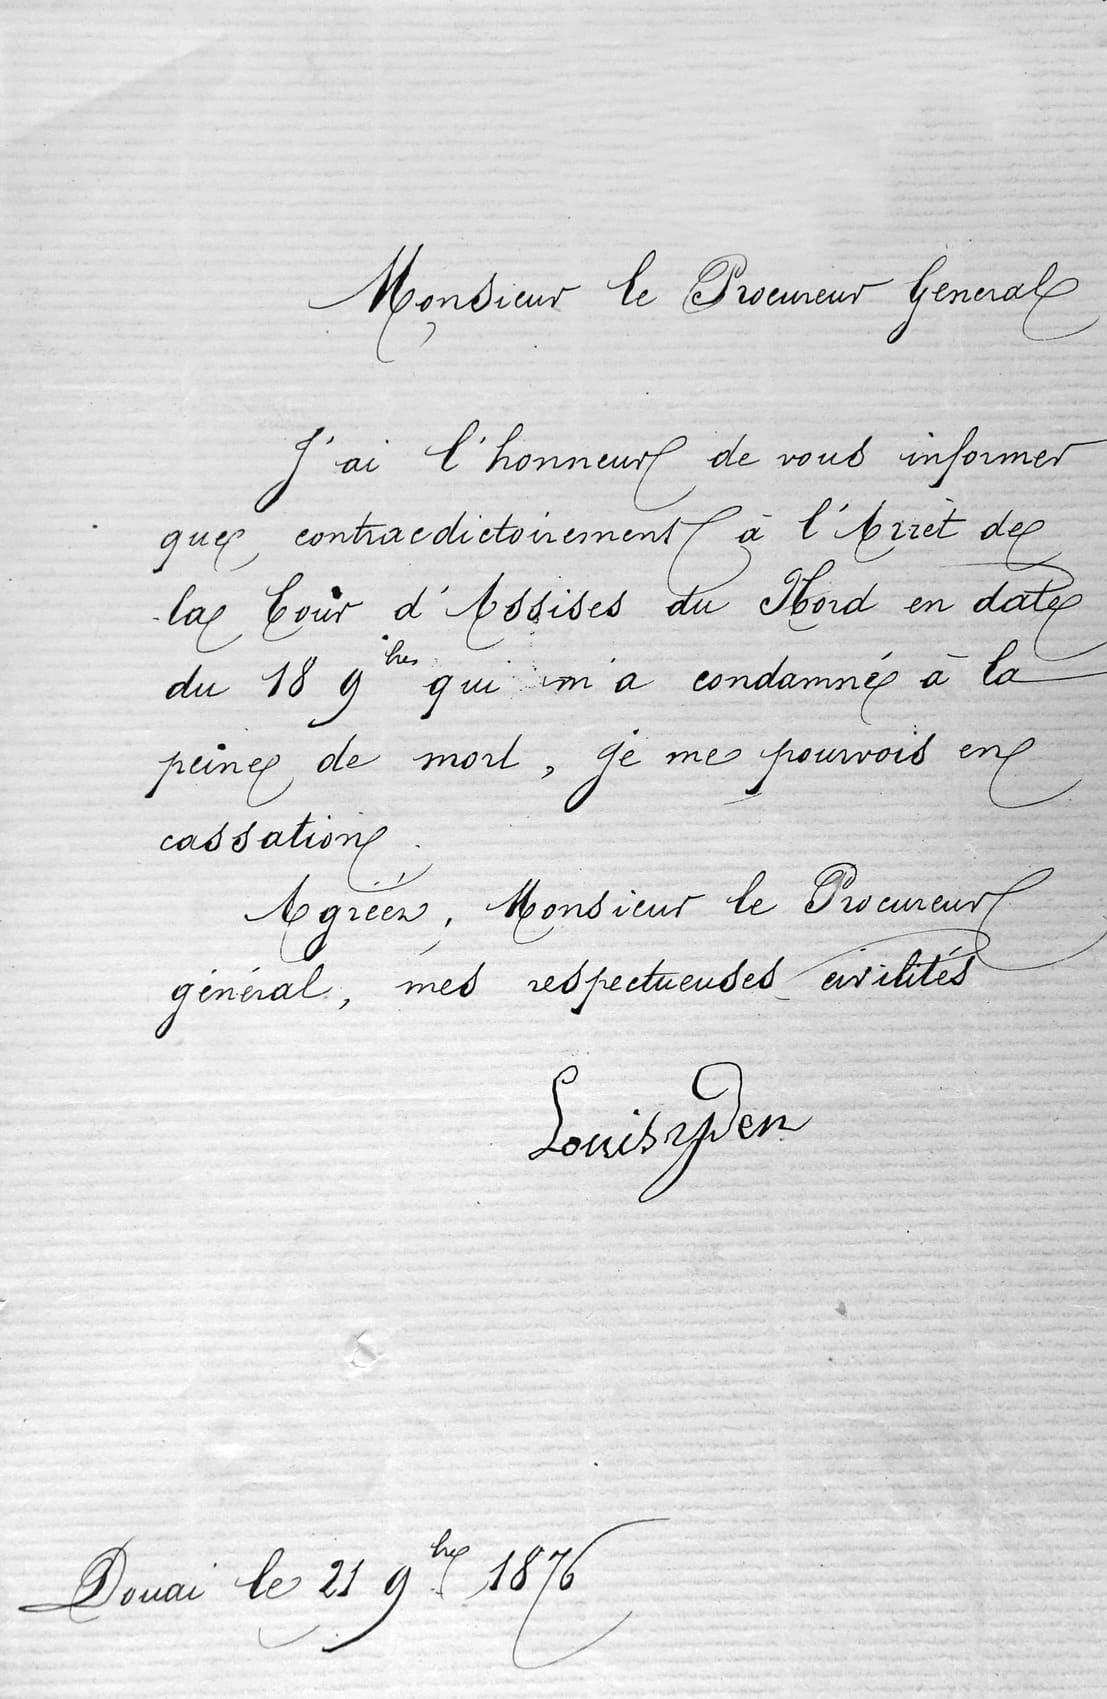 Monsieur le Procureur Général
J'ai l'honneur de vous informer
que, contradictoirement à l'Arrêt de
la Cour d'Assises du Nord en date
du 18 9bre qui m'a condamné à la
peine de mort, je me pourvois en
cassation.
Agréez, Monsieur le Procureur
général, mes respectueuses civilités
Louis yden
Douai le 21 9bre 1876